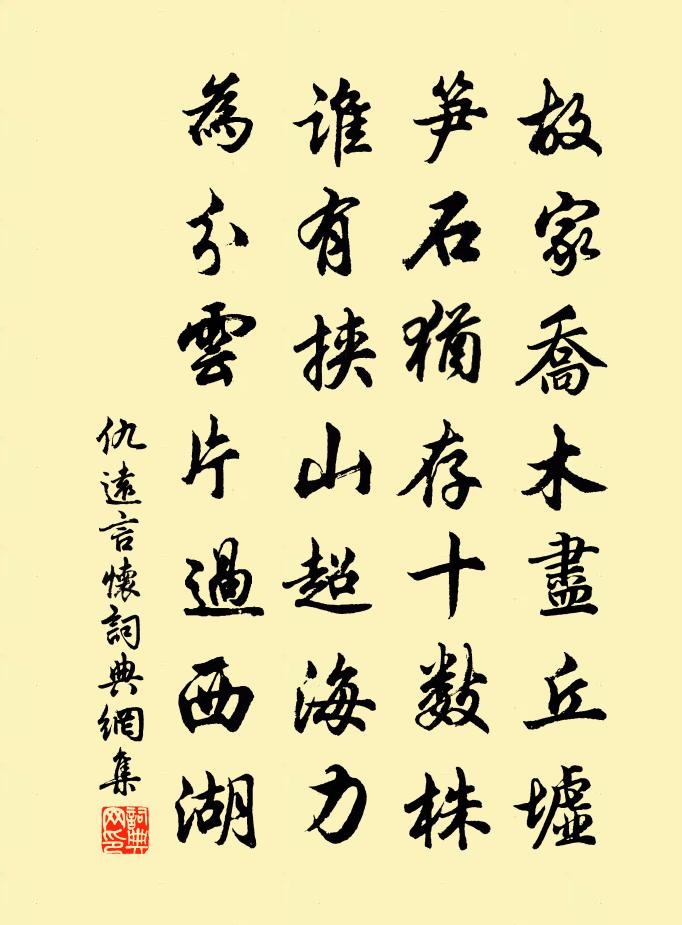 故家喬木盡丘墟
笋石猶存十數株
誰有挾山超海力
為分雲片過西湖
仇遠言懷詞典網集
詞典
网印